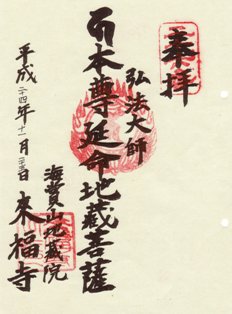 奉拝
弘法大師
本尊延命地蔵菩薩
平成二四年十一月二三日
海賞山地蔵院
来福寺